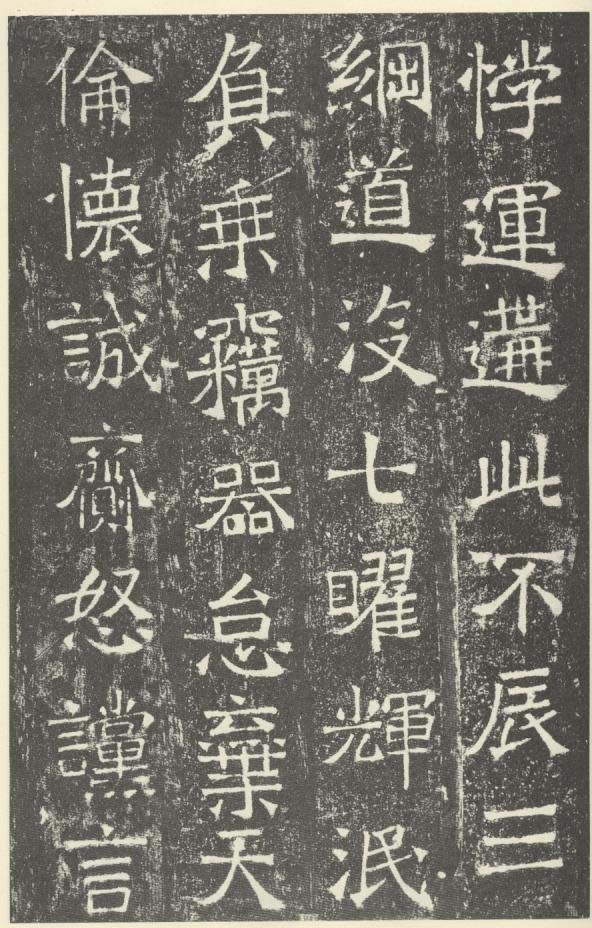 悖運遘此不辰三
綱道没七曜輝泯
負乗竊器怠棄天
倫懐誠齎怒讜言